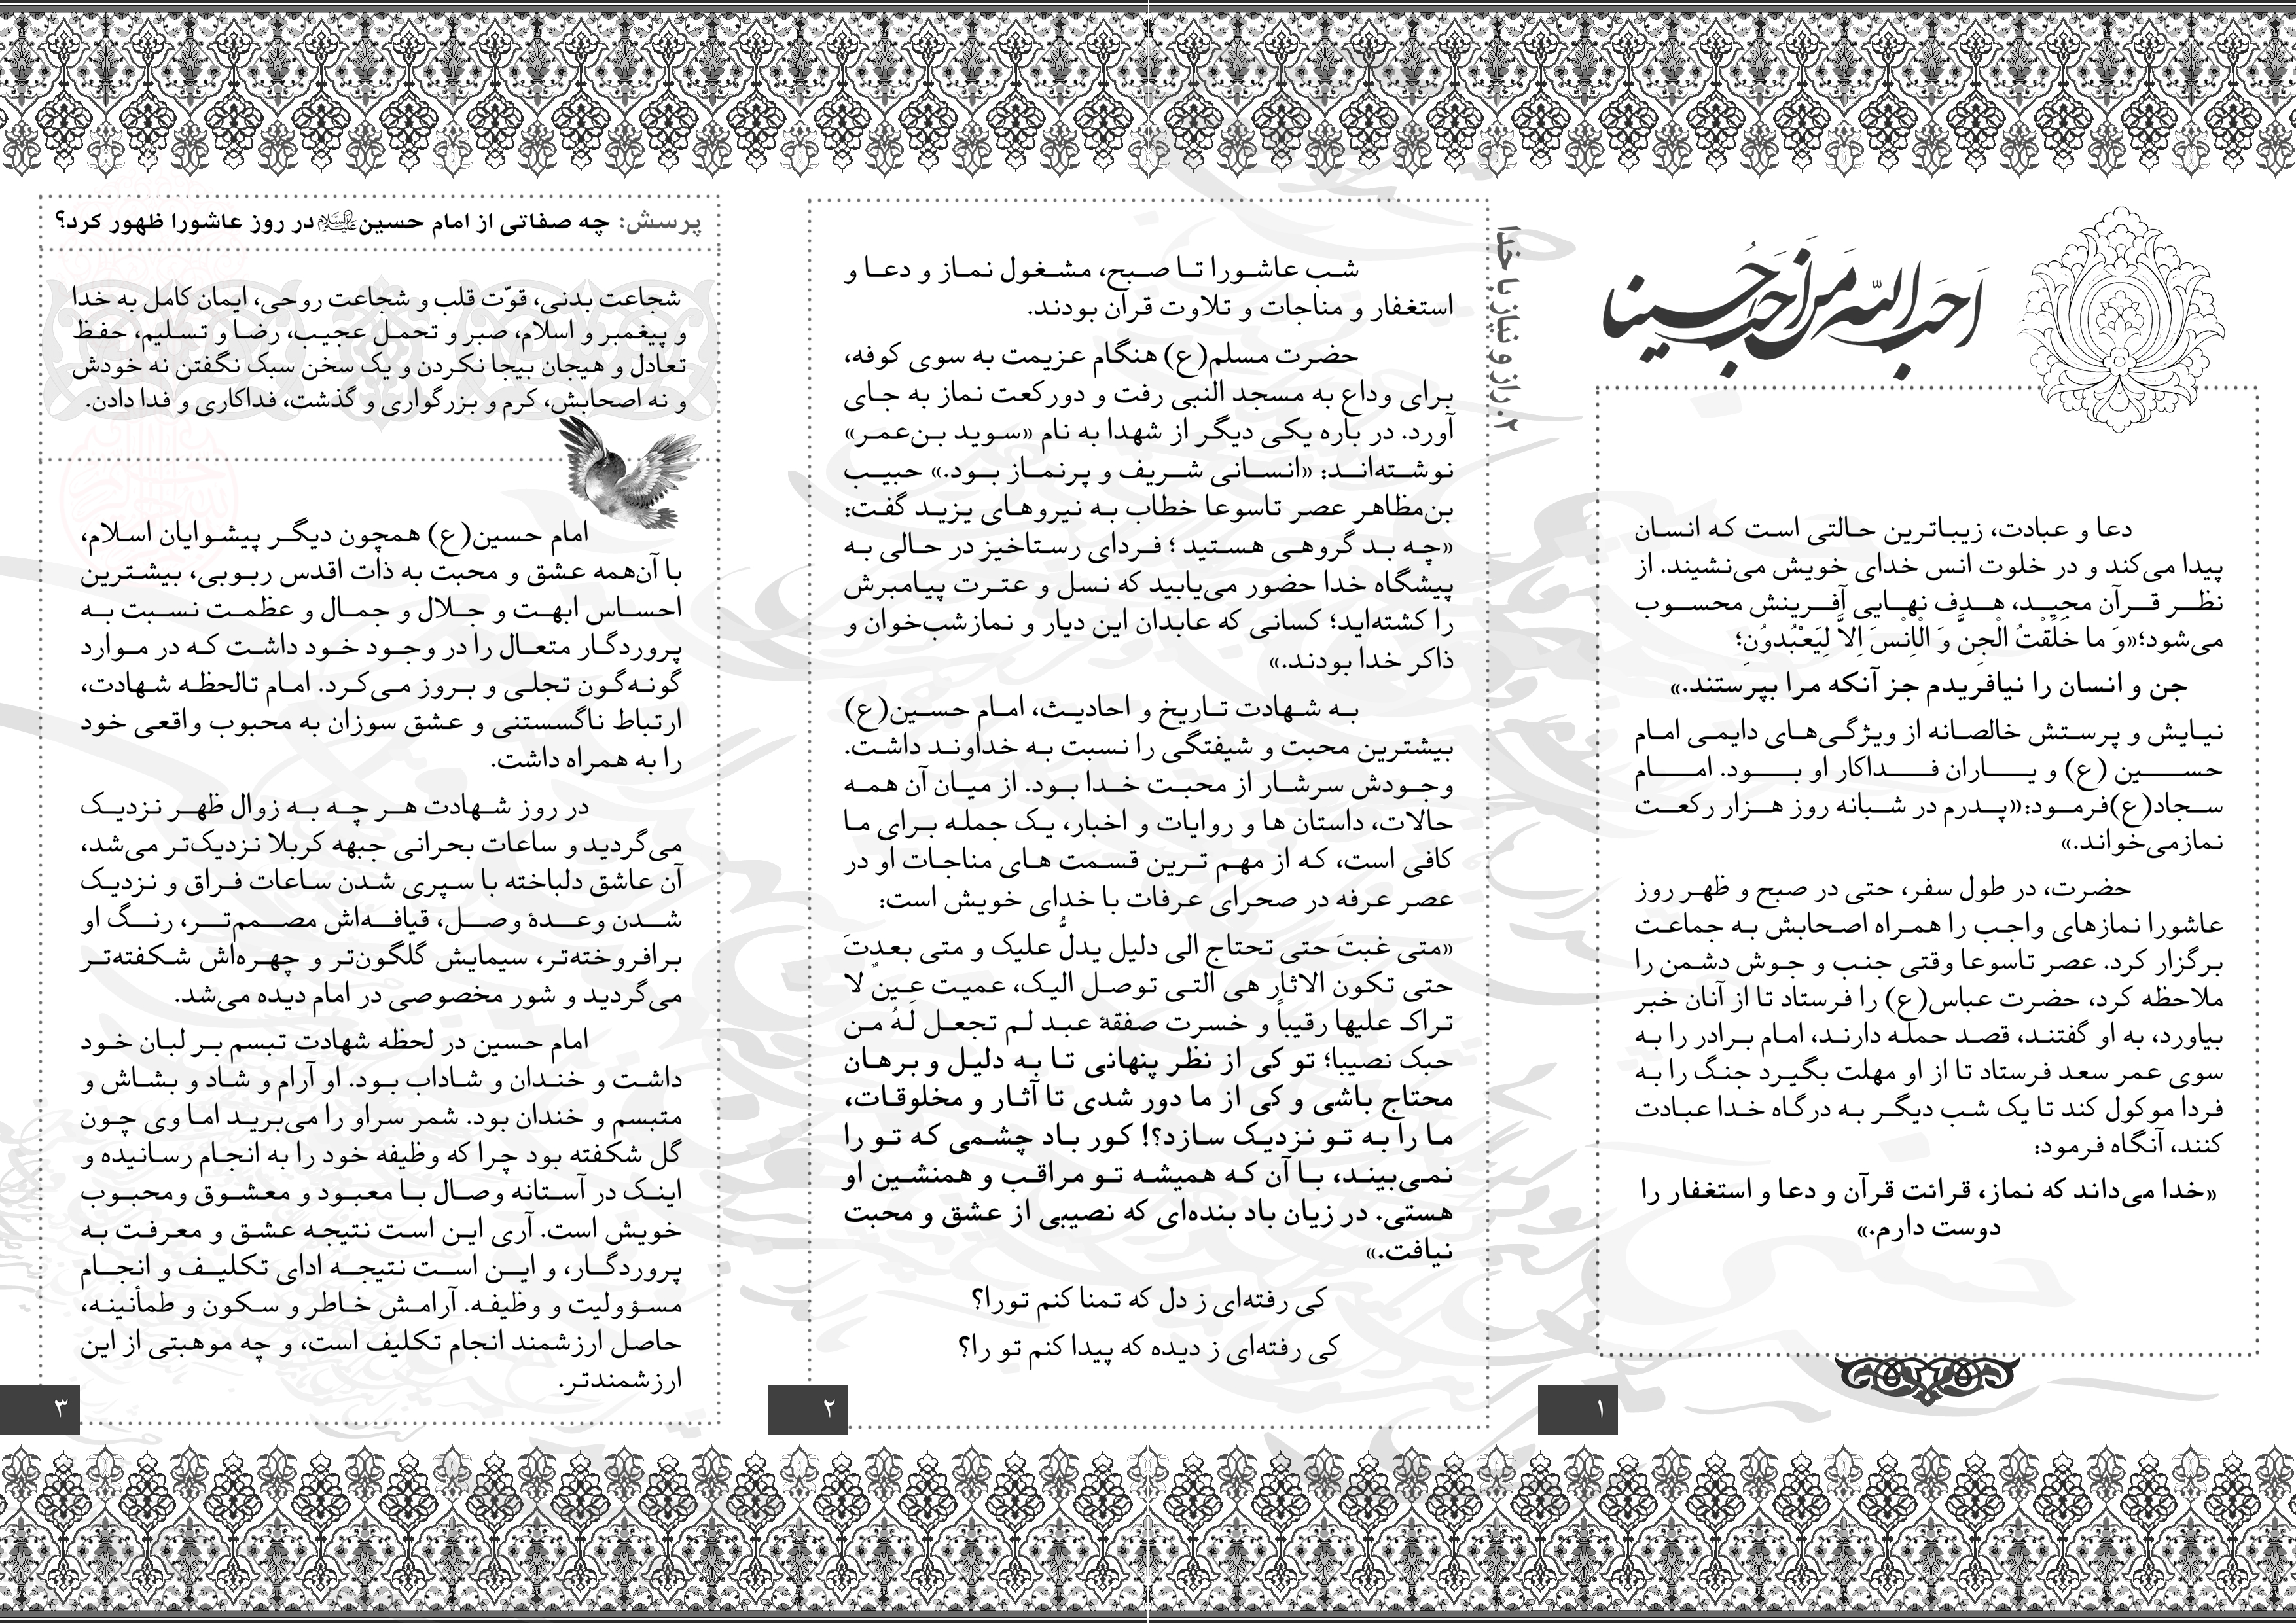 احب الله من احب حسینا
دعا و عبادت، زیباترین حالتی است که انسان
پیدا می‌کند و در خلوت انس خدای خویش می‌نشیند. از
نظر قرآن مجید، هدف نهایی آفرینش محسوب
می‌شود؛«وَ ما خَلَقْتُ الْجِنَّ وَ الْاِنْسَ اِلاَّ لِیَعْبُدوُنِ؛
جن و انسان را نیافریدم جز آنکه مرا بپرستند.»
نیایش و پرستش خالصانه از ویژگی‌های دایمی امام
حسین (ع) و یاران فداکار او بود. امام
سجاد(ع)فرمود:«پدرم در شبانه روز هزار رکعت
نمازمی‌خواند.»
حضرت، در طول سفر، حتی در صبح و ظهر روز
عاشورا نمازهای واجب را همراه اصحابش به جماعت
برگزار کرد. عصر تاسوعا وقتی جنب و جوش دشمن را
ملاحظه کرد، حضرت عباس(ع) را فرستاد تا از آنان خبر
بیاورد، به او گفتند، قصد حمله دارند، امام برادر را به
سوی عمر سعد فرستاد تا از او مهلت بگیرد جنگ را به
فردا موکول کند تا یک شب دیگر به درگاه خدا عبادت
کنند، آنگاه فرمود:
«خدا می‌داند که نماز، قرائت قرآن و دعا و استغفار را
دوست دارم.»
۱
۲. راز و نیاز با خدا
شب عاشورا تا صبح، مشغول نماز و دعا و
استغفار و مناجات و تلاوت قرآن بودند.
حضرت مسلم(ع) هنگام عزیمت به سوی کوفه،
برای وداع به مسجد النبی رفت و دورکعت نماز به جای
آورد. در باره یکی دیگر از شهدا به نام «سوید بن‌عمر»
نوشته‌اند: «انسانی شریف و پرنماز بود.» حبیب
بن‌مظاهر عصر تاسوعا خطاب به نیروهای یزید گفت:
«چه بد گروهی هستید ؛ فردای رستاخیز در حالی به
پیشگاه خدا حضور می‌یابید که نسل و عترت پیامبرش
را کشته‌اید؛ کسانی که عابدان این دیار و نمازشب‌خوان و
ذاکر خدا بودند.»
به شهادت تاریخ و احادیث، امام حسین(ع)
بیشترین محبت و شیفتگی را نسبت به خداوند داشت.
وجودش سرشار از محبت خدا بود. از میان آن همه
حالات، داستان ها و روایات و اخبار، یک جمله برای ما
کافی است، که از مهم ترین قسمت های مناجات او در
عصر عرفه در صحرای عرفات با خدای خویش است:
«متی غبتَ حتی تحتاج الی دلیل یدلُّ علیک و متی بعدتَ
حتی تکون الاثار هی التی توصل الیک، عمیت عینٌ لا
تراک علیها رقیباً و خسرت صفقهٔ عبد لم تجعل لَهُ من
حبک نصیبا؛ تو کی از نظر پنهانی تا به دلیل و برهان
محتاج باشی و کی از ما دور شدی تا آثار و مخلوقات،
ما را به تو نزدیک سازد؟! کور باد چشمی که تو را
نمی‌بیند، با آن که همیشه تو مراقب و همنشین او
هستی. در زیان باد بنده‌ای که نصیبی از عشق و محبت
نیافت.»
کی رفته‌ای ز دل که تمنا کنم تورا؟
کی رفته‌ای ز دیده که پیدا کنم تو را؟
۲
پرسش: چه صفاتی از امام حسین علیه‌السلام در روز عاشورا ظهور کرد؟
شجاعت بدنی، قوّت قلب و شجاعت روحی، ایمان کامل به خدا
و پیغمبر و اسلام، صبر و تحمل عجیب، رضا و تسلیم، حفظ
تعادل و هیجان بیجا نکردن و یک سخن سبک نگفتن نه خودش
و نه اصحابش، کرم و بزرگواری و گذشت، فداکاری و فدا دادن.
امام حسین(ع) همچون دیگر پیشوایان اسلام،
با آن‌همه عشق و محبت به ذات اقدس ربوبی، بیشترین
احساس ابهت و جلال و جمال و عظمت نسبت به
پروردگار متعال را در وجود خود داشت که در موارد
گونه‌گون تجلی و بروز می‌کرد. امام تالحظه شهادت،
ارتباط ناگسستنی و عشق سوزان به محبوب واقعی خود
را به همراه داشت.
در روز شهادت هر چه به زوال ظهر نزدیک
می‌گردید و ساعات بحرانی جبهه کربلا نزدیک‌تر می‌شد،
آن عاشق دلباخته با سپری شدن ساعات فراق و نزدیک
شدن وعدهٔ وصل، قیافه‌اش مصمم‌تر، رنگ او
برافروخته‌تر، سیمایش گلگون‌تر و چهره‌اش شکفته‌تر
می‌گردید و شور مخصوصی در امام دیده می‌شد.
امام حسین در لحظه شهادت تبسم بر لبان خود
داشت و خندان و شاداب بود. او آرام و شاد و بشاش و
متبسم و خندان بود. شمر سراو را می‌برید اما وی چون
گل شکفته بود چرا که وظیفه خود را به انجام رسانیده و
اینک در آستانه وصال با معبود و معشوق ومحبوب
خویش است. آری این است نتیجه عشق و معرفت به
پروردگار، و این است نتیجه ادای تکلیف و انجام
مسؤولیت و وظیفه. آرامش خاطر و سکون و طمأنینه،
حاصل ارزشمند انجام تکلیف است، و چه موهبتی از این
ارزشمندتر.
۳